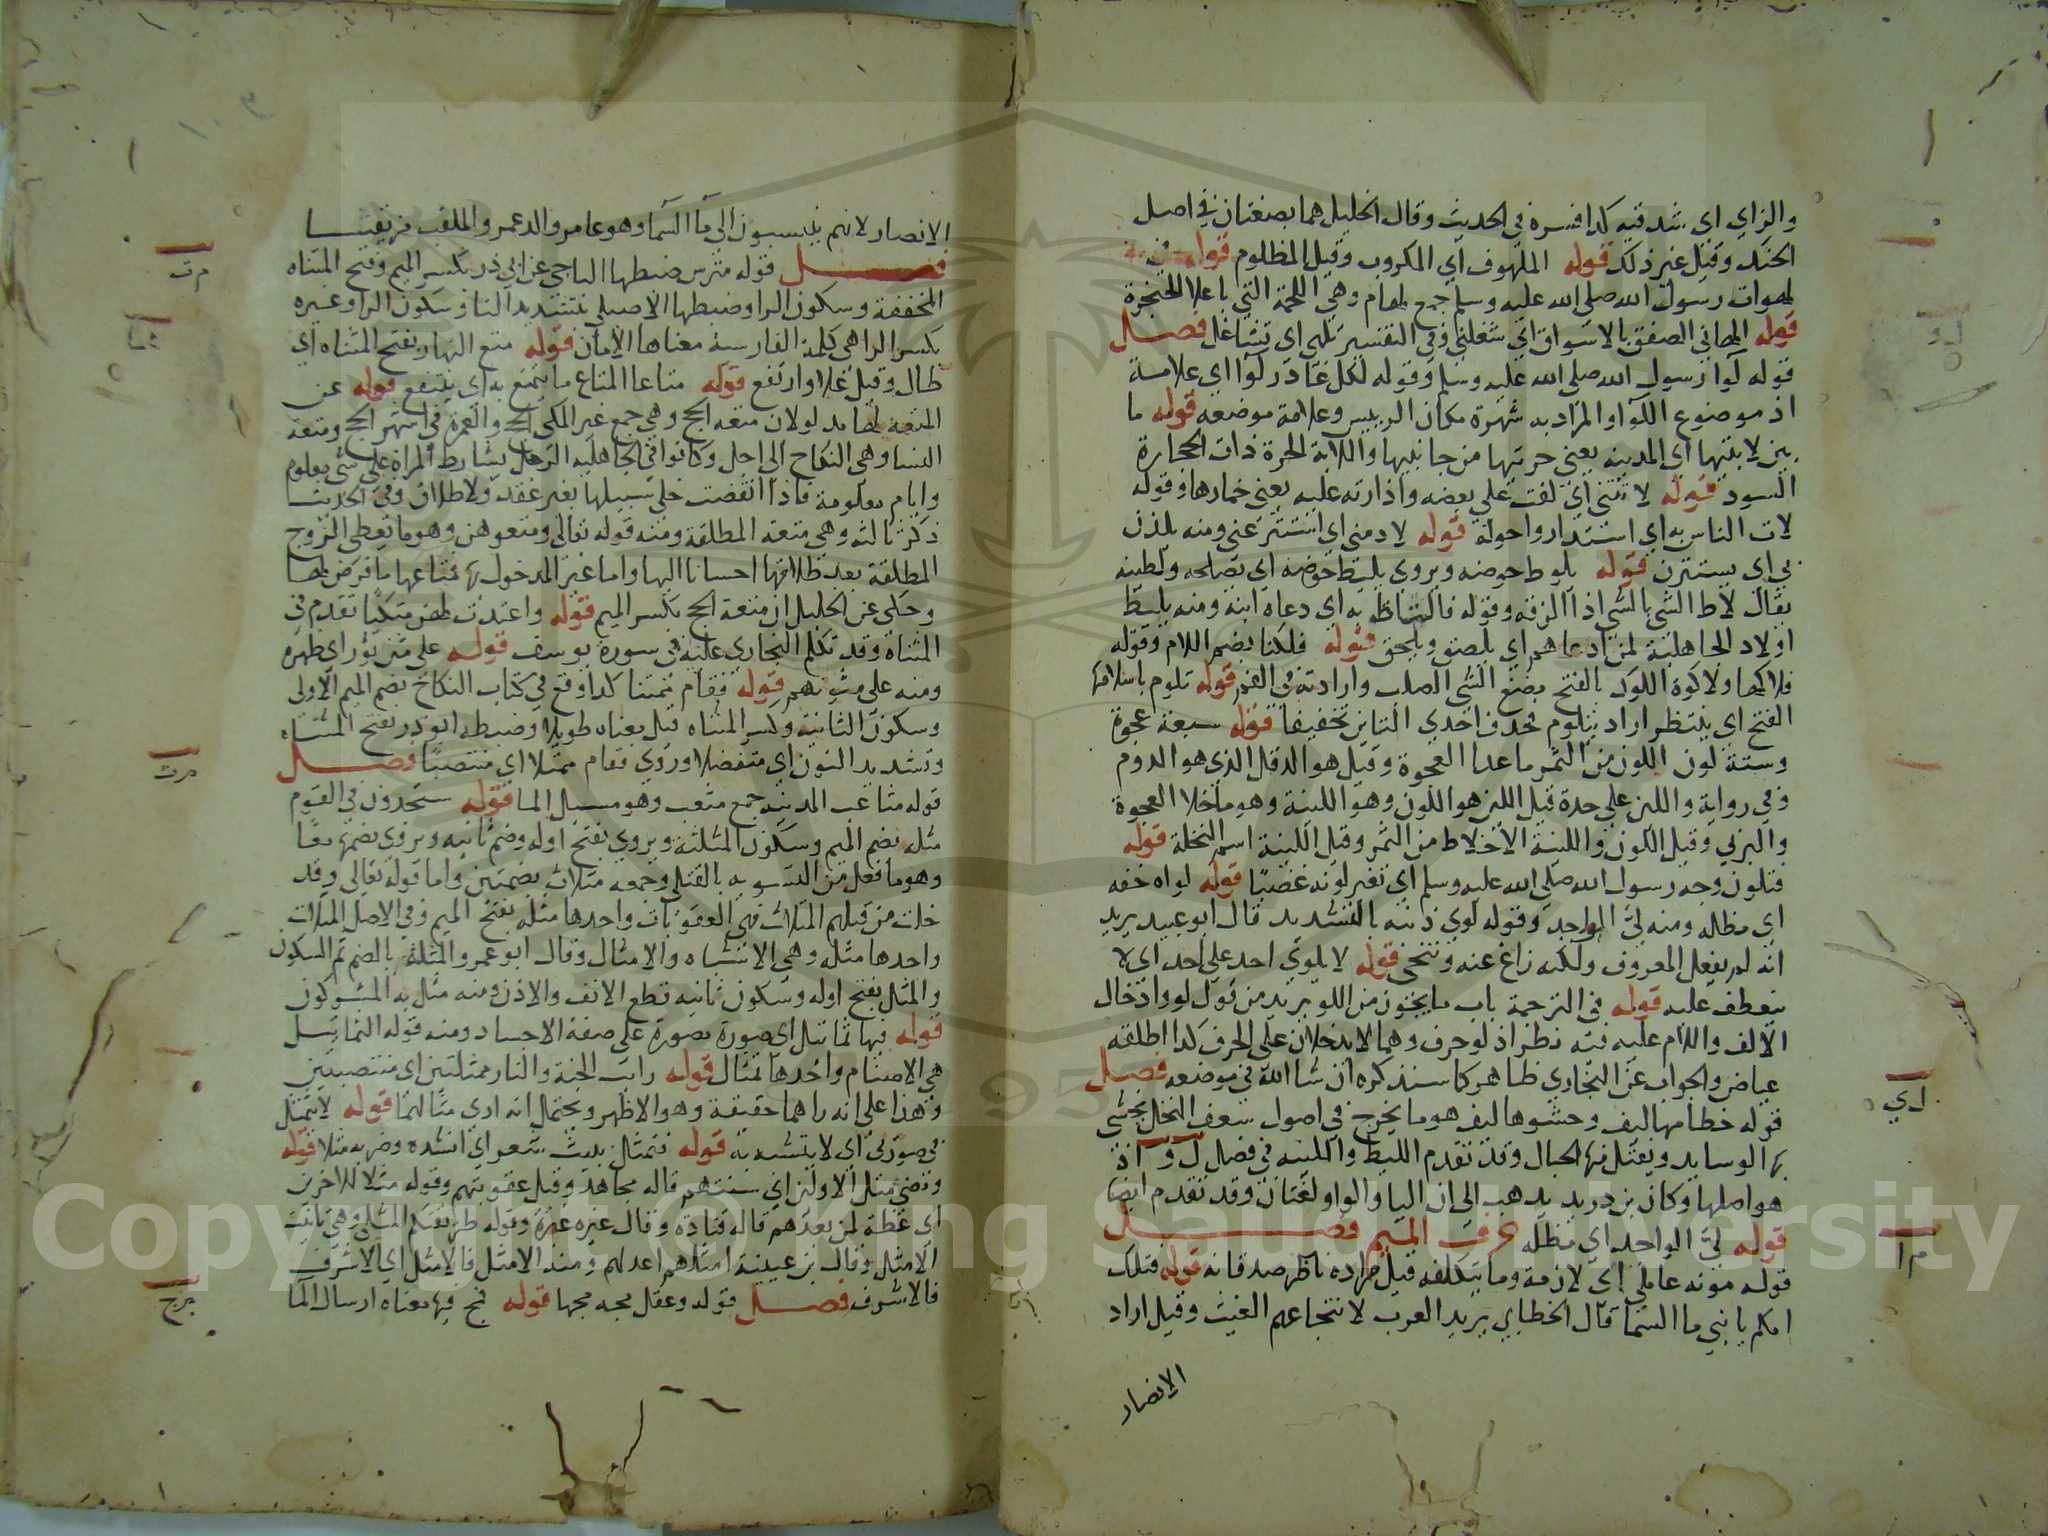 والزاي اى شدقيه كدا فسره في الحديث وقال الخليل هما بضعتان في اصل
الحنك وقيل غير ذلك قوله الملهوف اي المكروب وقيل المظلوم قوله
لهوات رسول الله صلى الله عليه وسلم جمع لهاه وهي اللحمة التي باعلا الحنجرة
قوله الهاني الصفق بالاسواق اي شغلني وفي التفسير تلهى اى تشاغل فصل
قوله لوا رسول الله صلى الله عليه وسلم وقوله لكل غادر لوا اي علامة
اذ موضوع اللوا والمراد به شهرة مكان الرييس وعلامة موضعه قوله ما
بين لابتيها اي المدينه يعني حرتيها من جانبيها واللابة الحرة ذات الحجارة
السود قوله لاثتني اي لفت على بعضه وادارته عليه يعني خمارها وقوله
لاث الناس به اي استدار واحوله قوله لاد منى اى استتر عنى ومنه يلذن
بي اى يستترن قوله يلوط حوضه ويروى يليط حوضه اى يصلحه ويطينه
يقال لاط الشي بالشي اذا الزقه وقوله فالتاط به اى دعاه ابنه ومنه يليط
اولاد الجاهلية لمن ادعاهم اي يلصق ويلحق قوله فلكنا بضم اللام وقوله
فلاكها ولا كوة اللوك بالفتح مضغ الشي الصلب وارادته في الفم قوله تلوم باسلامها
الفتح اي ينتظر اراد تتلوم فحدف احدى التاين تخفيفا قوله سبعة عجوة
وستة لون اللون من التمر ماعدا العجوة وقيل هو الدقل الذى هو الدوم
وفي رواية واللين على حدة قيل اللين هو اللون وهو اللينة وهو ماخلا العجوة
والبرني وقيل اللون واللينة الاخلاط من التمر وقيل اللينة اسم النخلة قوله
فتلون وجه رسول الله صلى الله عليه وسلم اى تغير لونه غضبًا قوله لواه حقه
اي مطله ومنه ليّ الواجد وقوله لوى ذنبه بالتشديد قال ابو عبيد يريد
انه لم يفعل المعروف ولكنه زاغ عنه وتنحى قوله لا يلوي احد على احد اى لا
يتعطف عليه قوله في الترجمة باب ما يجوز من اللو يريد من قول لو وادخال
الالف واللام عليه فيه نظر اذ لو حرف وهما لا يدخلان على الحرف كدا اطلقه
عياض والجواب عن البخاري ظاهر كما سنذكره ان شا الله في موضعه فصل
قوله خطامها ليف وحشوها ليف هو ما يخرج في اصول سعف النخل يحشى
بها الوسايد ويفتل منها الحبال وقد تقدم الليط واللينه في فصل ل و اذ
هو اصلها وكان بن دريد يدهب الى ان اليا والواو لغتان وقد تقدم ايضا
قوله ليّ الواجد اي مطله حرف الميم فصل
قوله مونه عاملي اي لازمة وما يتكلفه قيل اراده ناظر صدقاته قوله فتلك
امكم يا بني ما السما قال الخطابي يريد العرب لانتجاعهم الغيث وقيل اراد
الانصار
ل و
ل ي
م ا
الانصار لانهم ينتسبون الى ما السما وهو عامر والد عمرو الملقب مزيقيا
فصل قوله مترس ضبطها الباجي عن ابي ذر بكسر الميم وفتح المثناه
المخففة وسكون الرا وضبطها الاصيلي بتشديد التا وسكون الرا وغيره
بكسر الرا هي كلمة الفارسية معناها الامان قوله متع النهار بفتح المثناه اى
طال وقيل علا وارتفع قوله متاعا المتاع ما يتمتع به اى ينتفع قوله عن
المتعه لها مدلولان متعه الحج وهي جمع غير المكي الحج والعمرة في اشهر الحج ومتعة
النسا وهي النكاح الى اجل وكانوا في الجاهليه الرجل يشارط المراة على شي معلوم
وايام معلومة فاذا انقضت خلى سبيلها بغير عقد ولا طلاق وفي الحديث
ذكر ثالثه وهي متعه المطلقة ومنه قوله تعالى ومتعوهن وهو ما يعطى الزوج
المطلقة بعد طلاقها احسانا اليها واما غير المدخول بها فمتاعها ما فرض لها
وحكى عن الخليل ان متعة الحج بكسر الميم قوله واعتدت لهن متكئًا تقدم في
المثناة وقد تكلم البخاري عليه في سورة يوسف قوله على متن ثور اى ظهره
ومنه على متونهم قوله فقام ممتنا كدا وقع في كتاب النكاح بضم الميم الاولى
وسكون الثانية وكسر المثناه قيل معناه طويلا وضبطه ابو ذر بفتح المثناه
وتشديد النون اي متفضلا وروى فقام ممثلا اي منتصبًا فصل
قوله مثاعب المدينه جمع مثعب وهو مسيل الما قوله ستجدون في القوم
مثله بضم الميم وسكون المثلثة ويروي بفتح اوله وضم ثانيه ويروى بضمها معًا
وهو ما فعل من التشويه بالقتلى وجمعه مثلات بضمتين واما قوله تعالى وقد
خلت من قبلهم المثلات فهي العقوبات واحدها مثله بفتح الميم وفي الاصل المثلات
واحدها مثله وهي الاشباه والامثال وقال ابو عمرو المثلة بالضم ثم السكون
والمثل بفتح اوله وسكون ثانيه قطع الانف والاذن ومنه مثل به المشركون
قوله فيها تماثيل اى صورة بصورة على صفة الاجساد ومنه قوله التماثيل
هي الاصنام واحدها تمثال قوله رايت الجنة والنار ممثلتين اى منتصبتين
وهذا على انه راهما حقيقة وهو الاظهر ويحتمل انه ارى مثالهما قوله لا يتمثل
في صورتي اى لا يتشبه به قوله فتمثل ببيت شعر اي انشده وضربه مثلا قوله
ومضى مثل الاولين اي سنتهم قاله مجاهد وقيل عقوبتهم وقوله مثلا للاخرين
اي عظة لمن بعدهم قاله قتادة وقال غيره عبرة وقوله طريقتكم المثلى وهي تانيث
الامثل وقال بن عيينة امثلهم اعدلهم ومنه الامثل فالامثل اي الاشرف
فالاشرف فصل قوله وعقل مجه مجها قوله فمج فيها معناه ارسال الما
م ت
م ث
م ج